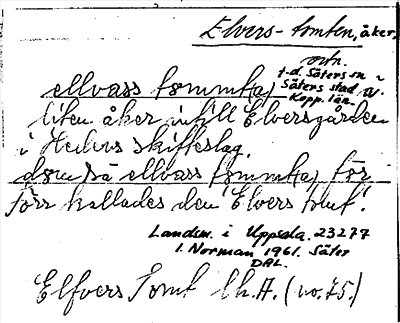 Elvers-tomten, åker,
ortn.
t.d. Säters sn i
Säters stad
Kopp. län.
ellvass tommta
liten åker intill Elversgården
i Hedens skifteslag.
ellvass tommta, för
förr kallades den "Elvers tomt".
Landsm. i Uppsala. 23277
I. Norman 1961. Säter
DAL.
Elfvers Tomt Ch.A. (no. 75.)